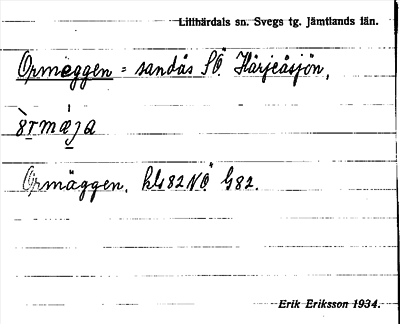 Lillhärdals sn. Svegs tg. Jämtlands län.
Ormäggen = sandås SÖ Härjeåsjön,
Ormäggen. hG82NÖ G82.
Erik Eriksson 1934.